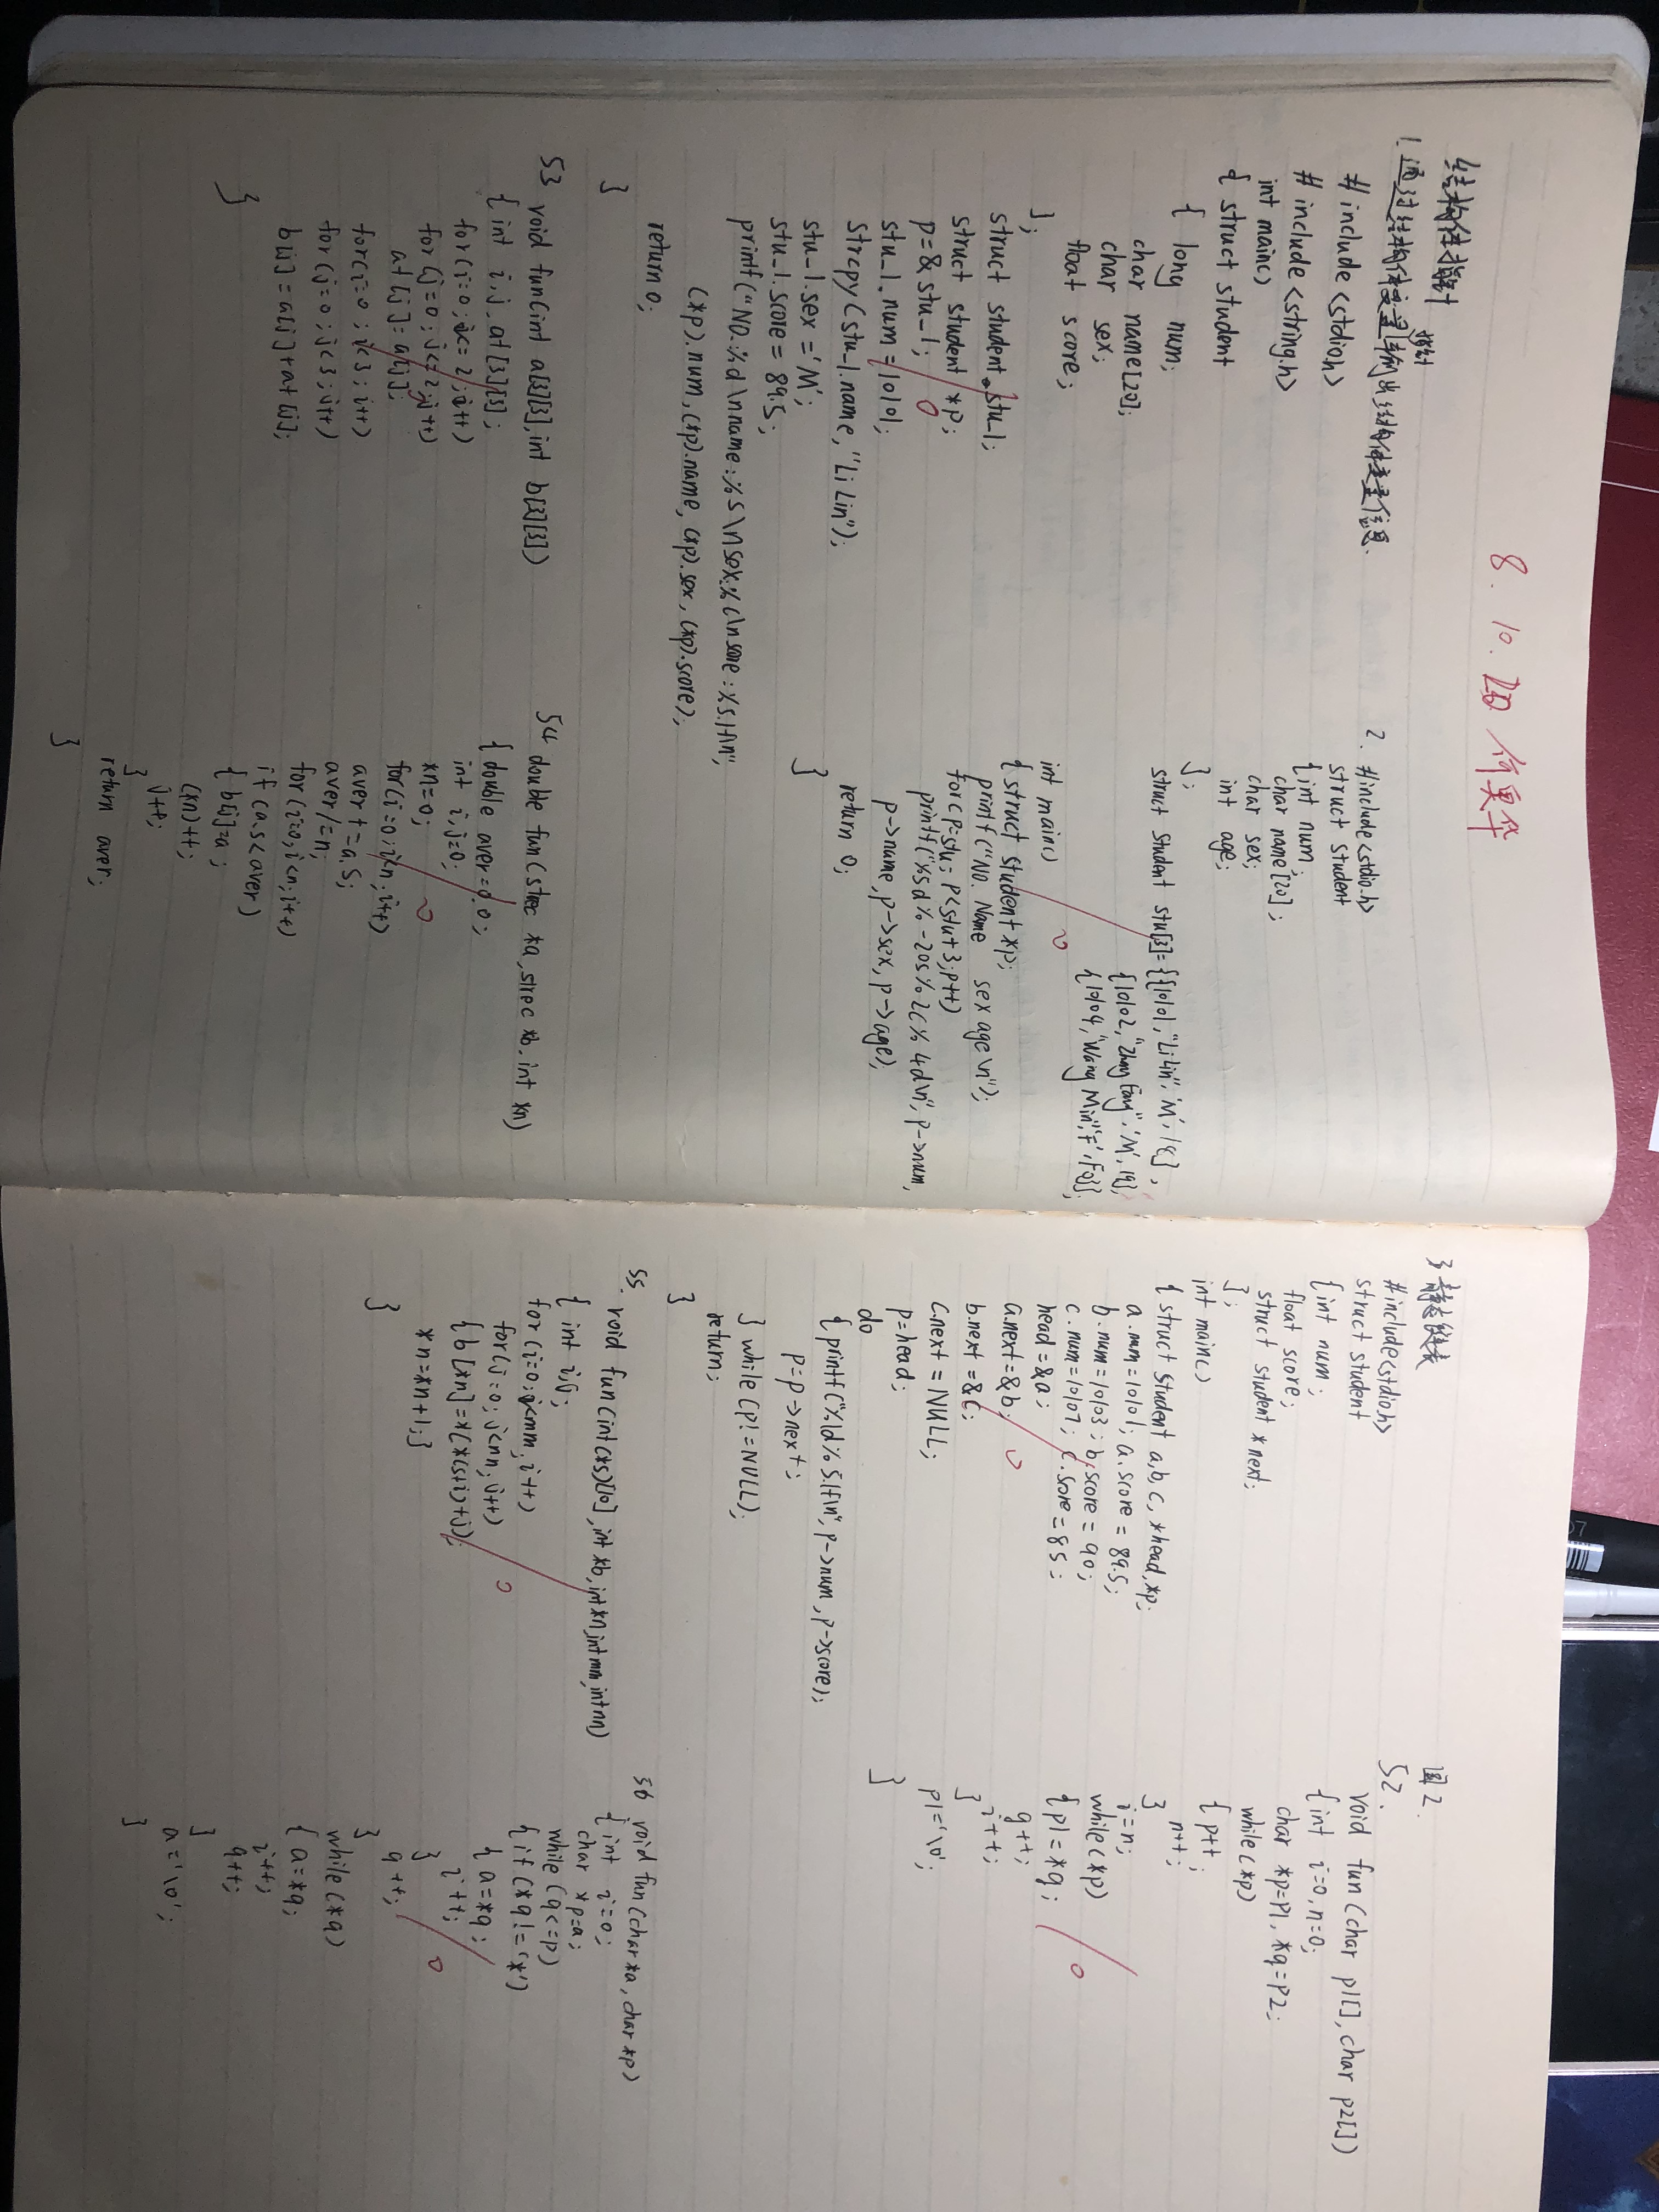 8. 10. 四 何昊华
结构体指针
1.通过结构体变量指针输出结构体变量信息.
#include <stdio.h>
#include <string.h>
int main()
{ struct student
{ long num;
char name[20];
char sex;
float score;
};
struct student stu_1;
struct student *p;
p=& stu_1;
stu_1.num =10101;
strcpy(stu_1.name, "Li Lin");
stu_1.sex ='M';
stu_1.score = 89.5;
printf("NO.:%d\nname:%s\nsex:%c\nsore:%5.1f\n",
(*p).num, (*p).name, (*p).sex, (*p).score);
return 0;
}
53 void fun(int a[3][3], int b[3][3])
{ int i,j, at[3][3];
for(i=0; i<=2; i++)
for(j=0; j<=2; j++)
at [i][j] = a[i][j];
for(i=0; i<3; i++)
for(j=0; j<3; j++)
b[i][j] = a[i][j]+at[i][j];
}
2. #include<stdio.h>
struct student
{int num;
char name[20];
char sex;
int age;
};
struct student stu[3]={{10101,"Li Lin",'M',18},
{10102,"Zhang Fang",'M',19},
{10104,"Wang Min",'F',F0}};
int main()
{ struct student *p;
printf("NO. Name sex age\n");
for(p=stu; p<stu+3; p++)
printf("%5d%-20s%2c%4d\n", p->num,
p->name, p->sex, p->age);
return 0;
}
54 double fun(strec *a, strec *b, int *n)
{ double aver=0.0;
int i,j=0;
*n=0;
for(i=0; i<n; i++)
aver+=a.s;
aver/=n;
for(i=0; i<n; i++)
if(a.s<aver)
{ b[j]=a;
(*n)++;
j++;
}
return aver;
}
3 静态链表
#include<stdio.h>
struct student
{int num;
float score;
struct student *next;
};
int main()
{ struct student a,b,c, *head,*p;
a.num=10101; a.score = 89.5;
b.num=10103; b.score = 90;
c.num=10107; c.score=85;
head=&a;
a.next=&b;
b.next=&c;
c.next=NULL;
p=head;
do
{printf("%ld%5.1f\n", p->num, p->score);
p=p->next;
} while(p!=NULL);
return;
}
55. void fun(int(*s)[10], int *b, int *n, int mm, int nn)
{ int i,j;
for(i=0; j<mm; i++)
for(j=0; j<nn; j++)
{b[*n]=*(*(s+i)+j);
*n=*n+1;}
}
2.
52. void fun(char p1[], char p2[])
{int i=0, n=0;
char *p=p1, *q=p2;
while(*p)
{p++;
n++;
}
i=n;
while(*p)
{p1=*q;
q++;
i++;
}
p1='\0';
}
56 void fun(char *a, char *p)
{int i=0;
char *p=a;
while(q<=p)
{if(*q!='*')
{ a=*q;
i++;
}
q++;
}
while(*q)
{a=*q;
i++;
q++;
}
a='\0';
}